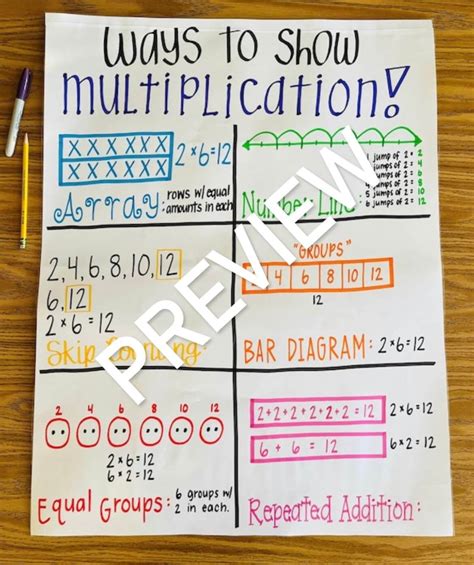 Ways to Show
Multiplication!
X X X X X X
X X X X X X
2×6=12
Array: rows w/ equal
amounts in each
1 jump of 2 = 2
jumps of 2 = 4
jumps of 2 = 6
jumps of 2 = 8
5 jumps of 2 = 10
6 jumps of 2 = 12
Number Line:
2, 4, 6, 8, 10, 12
6, 12
2×6=12
Skip Counting
"Groups"
4 6 8 10 12
12
Bar Diagram: 2×6=12
2 4 6 8 10 12
2×6=12
6×2=12
Equal Groups: 6 groups w/
2 in each.
2+2+2+2+2+2 = 12 2×6=12
6 + 6 = 12 6×2=12
Repeated Addition:
PREVIEW